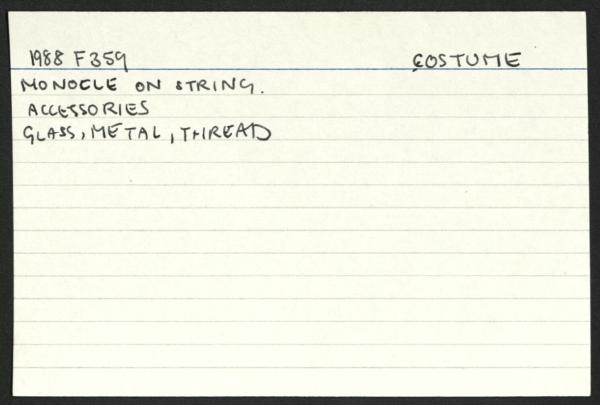 1988 F359 COSTUME
MONOCLE ON STRING.
ACCESSORIES
GLASS, METAL, THREAD